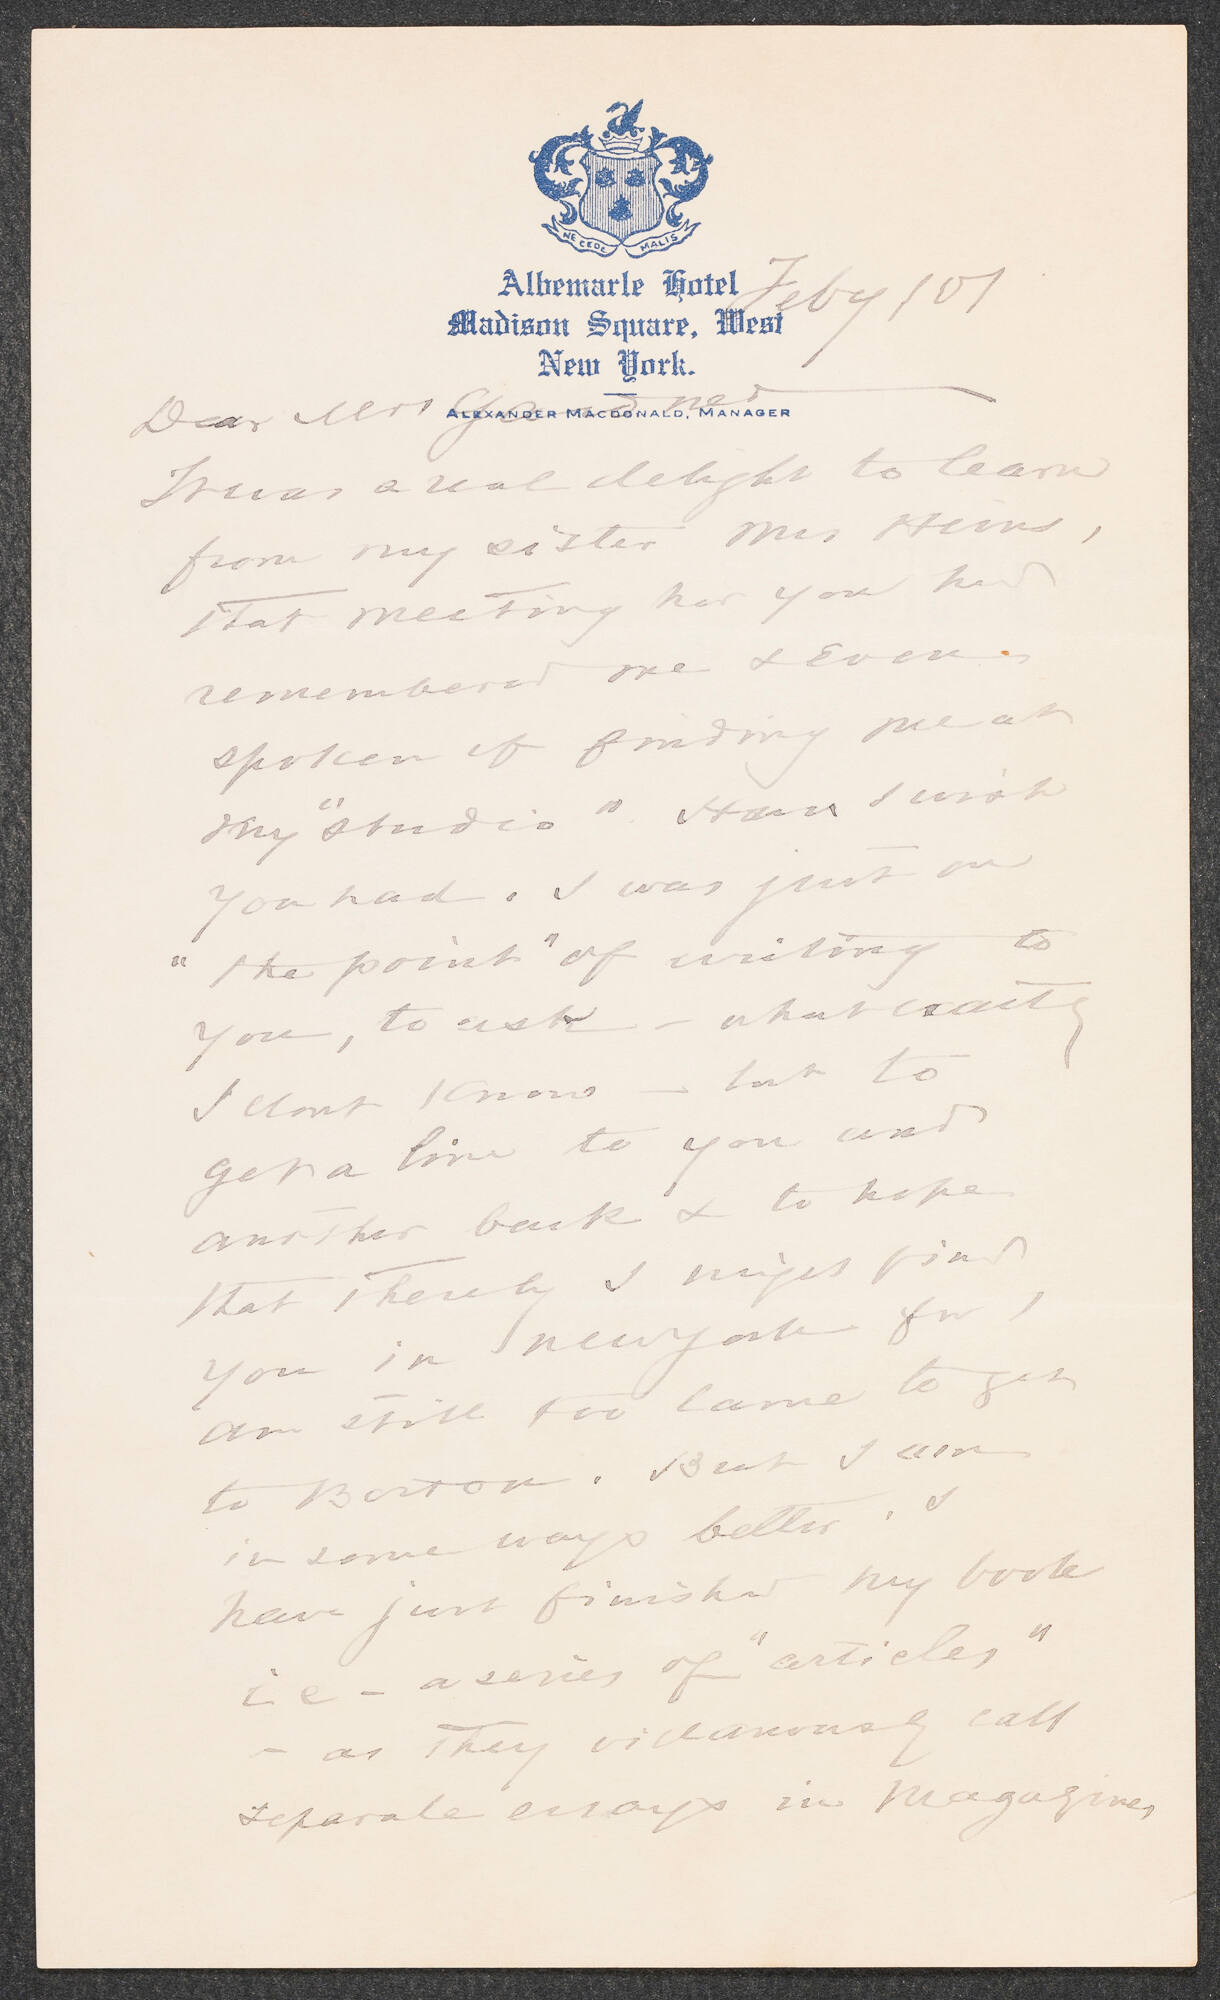 NE CEDE MALIS
Albemarle Hotel
Madison Square, West
New York.
Alexander Macdonald, Manager
Feby 1 01
Dear Mrs Gardner
It was a real delight to learn
from my sister Mrs Heins,
that meeting her you had
remembered me & even
spoken of finding me at
my "studio". How I wish
you had. I was just on
"the point" of writing to
you, to ask — what exactly
I dont know — but to
get a line to you and
another back & to hope
that thereby I might find
you in New York for I
am still too lame to get
to Boston. But I am
in some ways better. I
have just finished my book
i e - a series of "articles"
- as they call
separate essays in Magazines